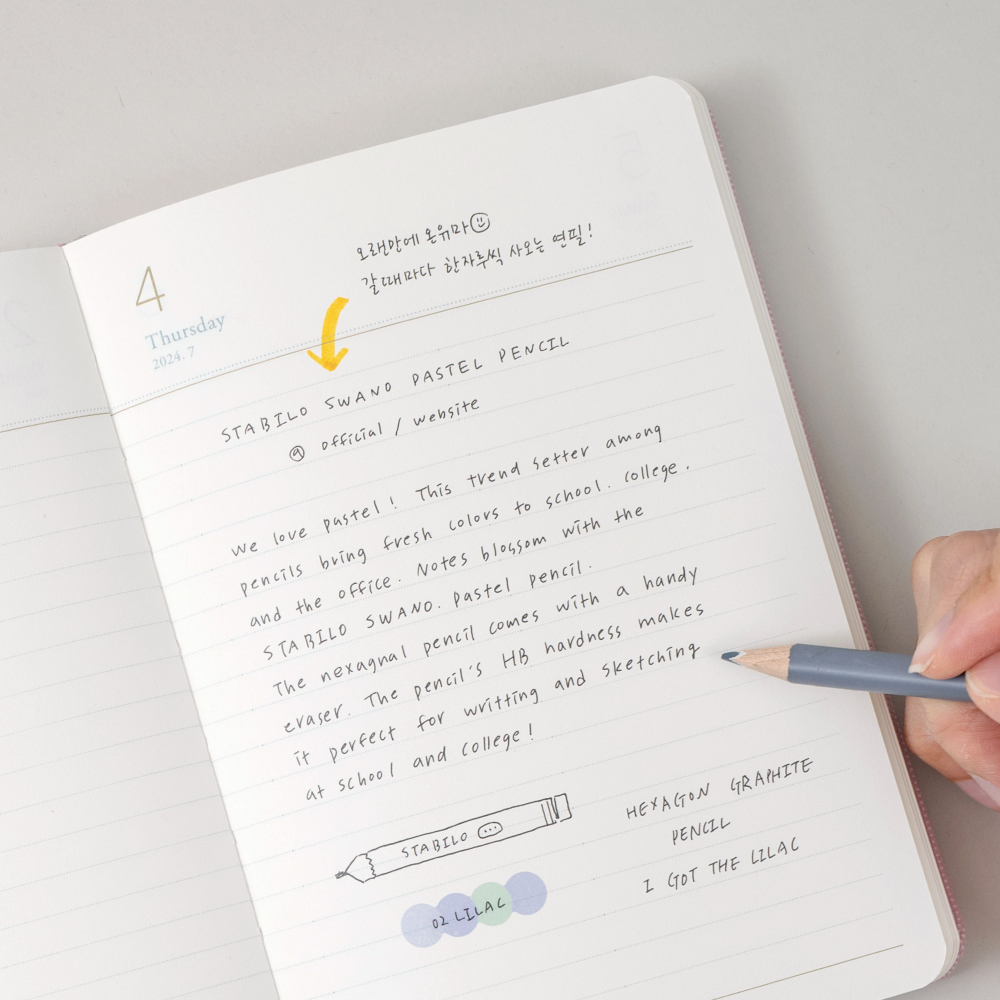 4
Thursday
2024. 7
오래만에 온유마
갈때마다 한자루씩 사오는 연필!
STABILO SWANO PASTEL PENCIL
@ official / website
we love pastel! This trend setter among
pencils bring fresh colors to school. college.
and the office. Notes blossom with the
STABILO SWANO. pastel pencil.
The nexagnal pencil comes with a handy
eraser. The pencil's HB hardness makes
it perfect for writting and sketching
at school and college!
STABILO
02 LILAC
HEXAGON GRAPHITE
PENCIL
I GOT THE LILAC